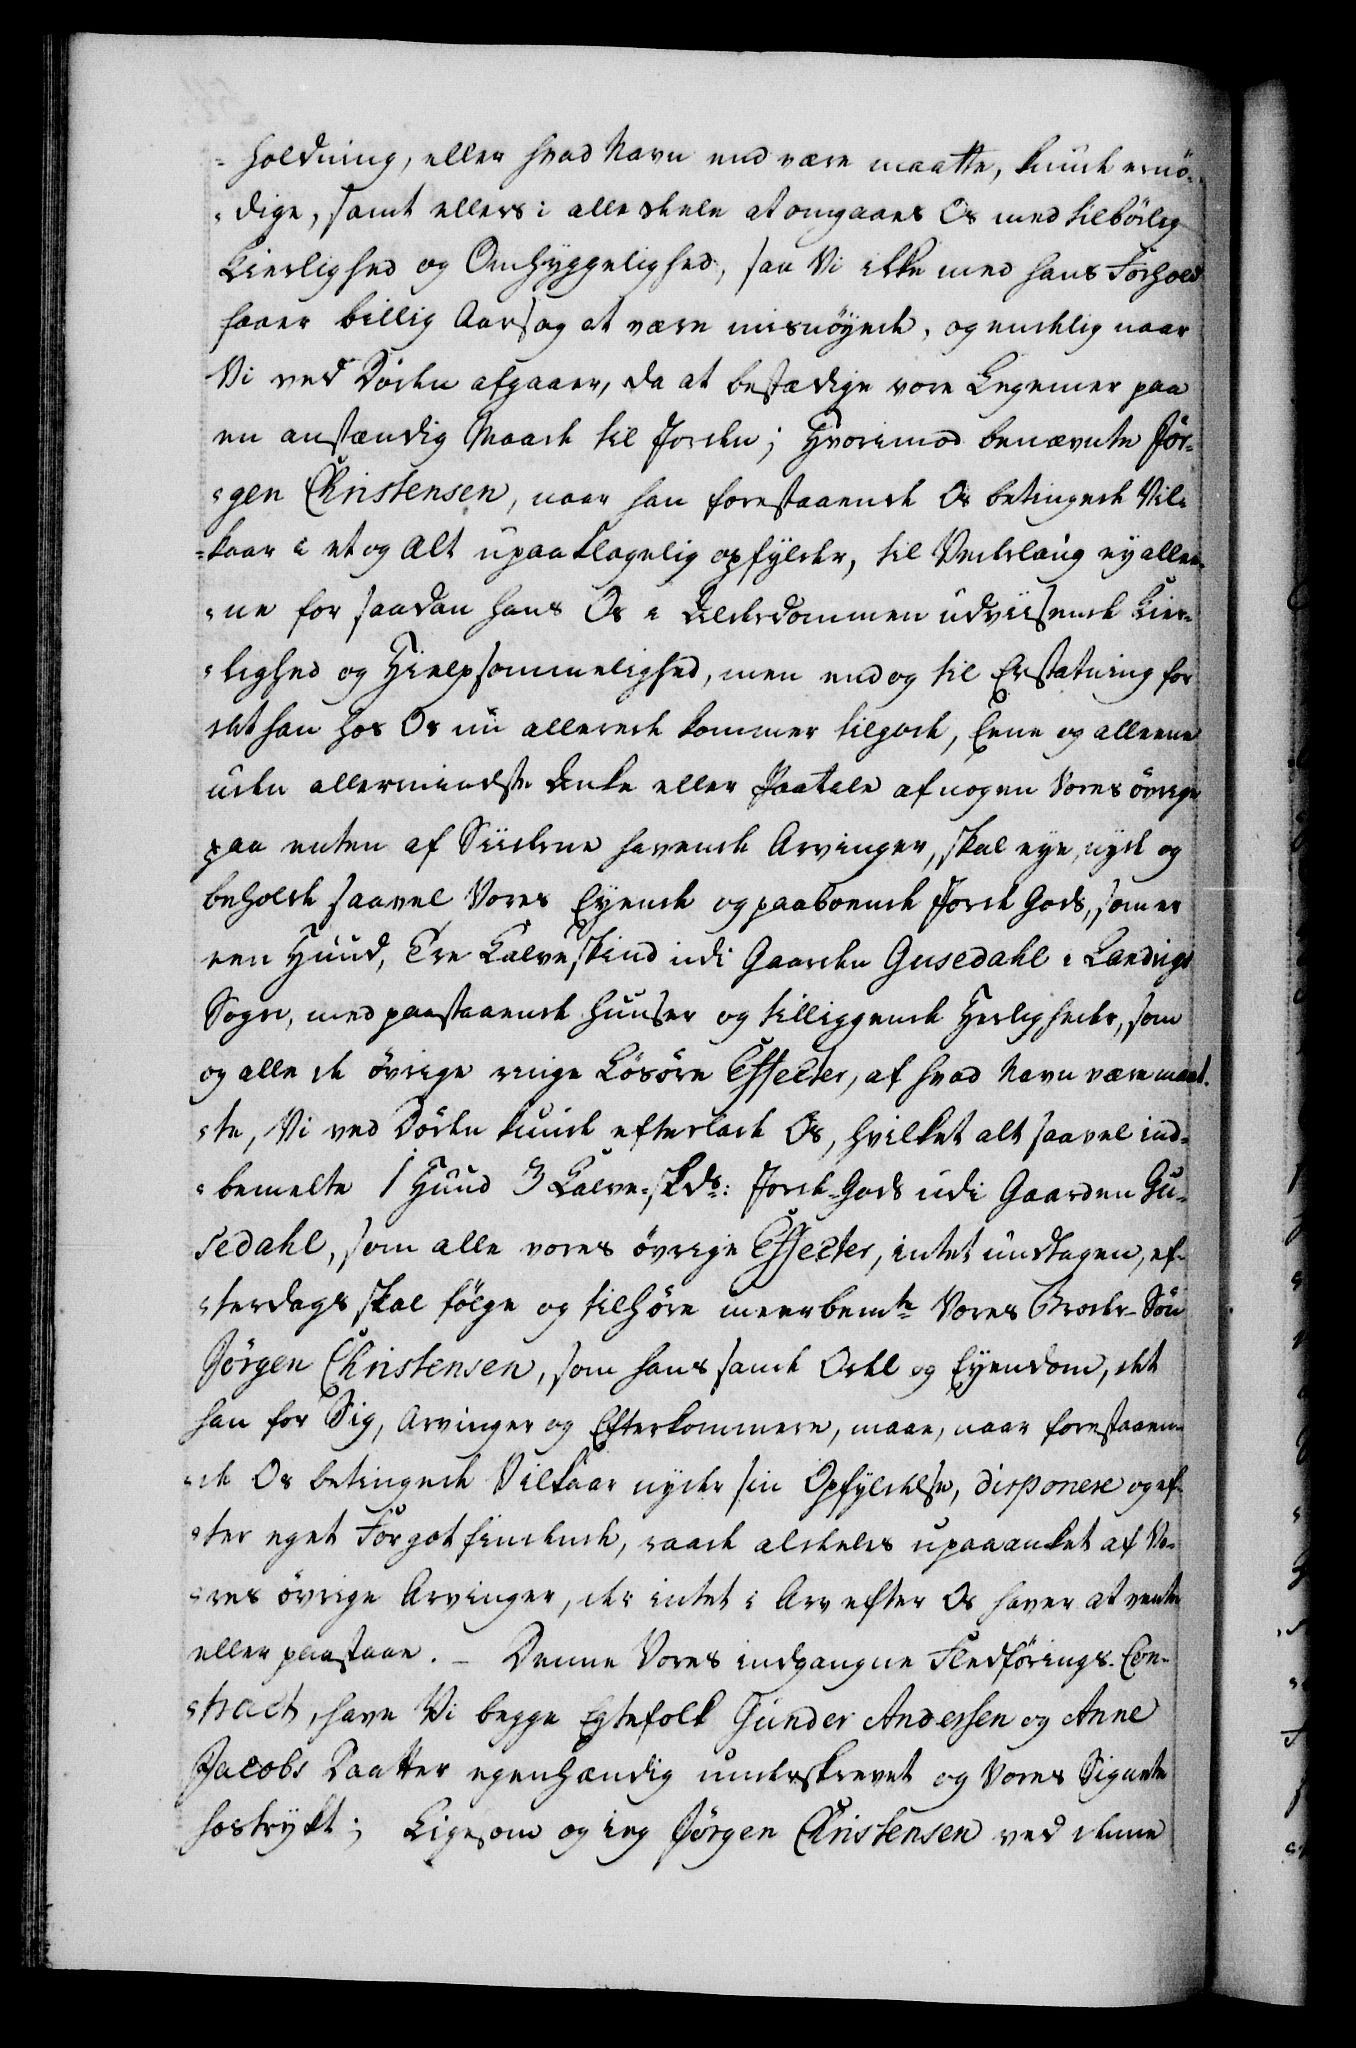 -holdning, eller hvad Navn end være maatte, kunde ernö-
-dige, samt ellers i alle deele at omgaaes Os med tilbörlig
Kierlighed og Omhyggelighed, saa Vi ikke med hans Forhold
faaer billig Aarsag at være misnöyede, og endelig naar
Vi ved Döden afgaaer, da at bestædige vore Legemer paa
en anstændig Maade til Jorden; Hvorimod benævnte Jör-
-gen Christensen, naar han forestaaende Os betingede Vil-
-kaar i et og Alt upaaklagelig opfylder, til Vederlaug ey allee-
-ne for saadan hans Os i Alderdommen udviisende Kier-
-lighed og Hielpsommelighed, men endog til Erstatning for
det han hos Os nu allerede kommer tilgode, Eene og alleene
uden allermindste Anke eller Paatale af nogen Vores övrige
paa enten af Siiderne havende Arvinger, skal eye, nyde og
beholde saavel Vores Eyende og paaboende Jorde Gods, som er
een Huud, Tre Kalveskind udi Gaarden Gusedahl i Landvigs
Sogn, med paastaaende Huuser og tilliggende Herligheder, som
og alle de övrige ringe Lösöre Effecter, af hvad Navn være maat-
-te, Vi ved Döden kunde efterlade Os, hvilket alt saavel ind-
-bemelte 1 Huud 3 Kalve-skds: Jorde-Gods udi Gaarden Gu-
sedahl, som alle vores övrige Effecter, intet undtagen, ef-
-terdags skal fölge og tilhöre meerbemte Vores Broder-Sön
Jörgen Christensen, som hans sande Odel og Eyendom, det
han for Sig, Arvinger og Efterkommere, maae, naar forestaaen-
-de Os betingede Vilkaar nyder sin Opfyldelse, disponere og ef-
-ter eget Forgotfindende, raade aldeles upaaanket af Vo-
-res övrige Arvinger, der intet i Arv efter Os haver at vente
eller paastaae. - Denne Vores indgangne Fledförings-Con-
-tract, have Vi begge Egtefolk Gunder Andersen og Anne
Jacobs Daatter egenhændig underskrevet og Vores Signete
hostrykt; Ligesom og ieg Jörgen Christensen ved denne